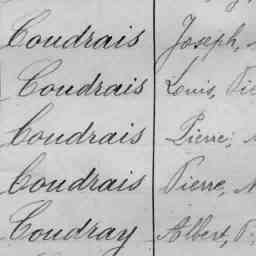 Coudrais Joseph,
Coudrais Louis,
Coudrais Pierre,
Coudrais Pierre,
Coudray Albert,